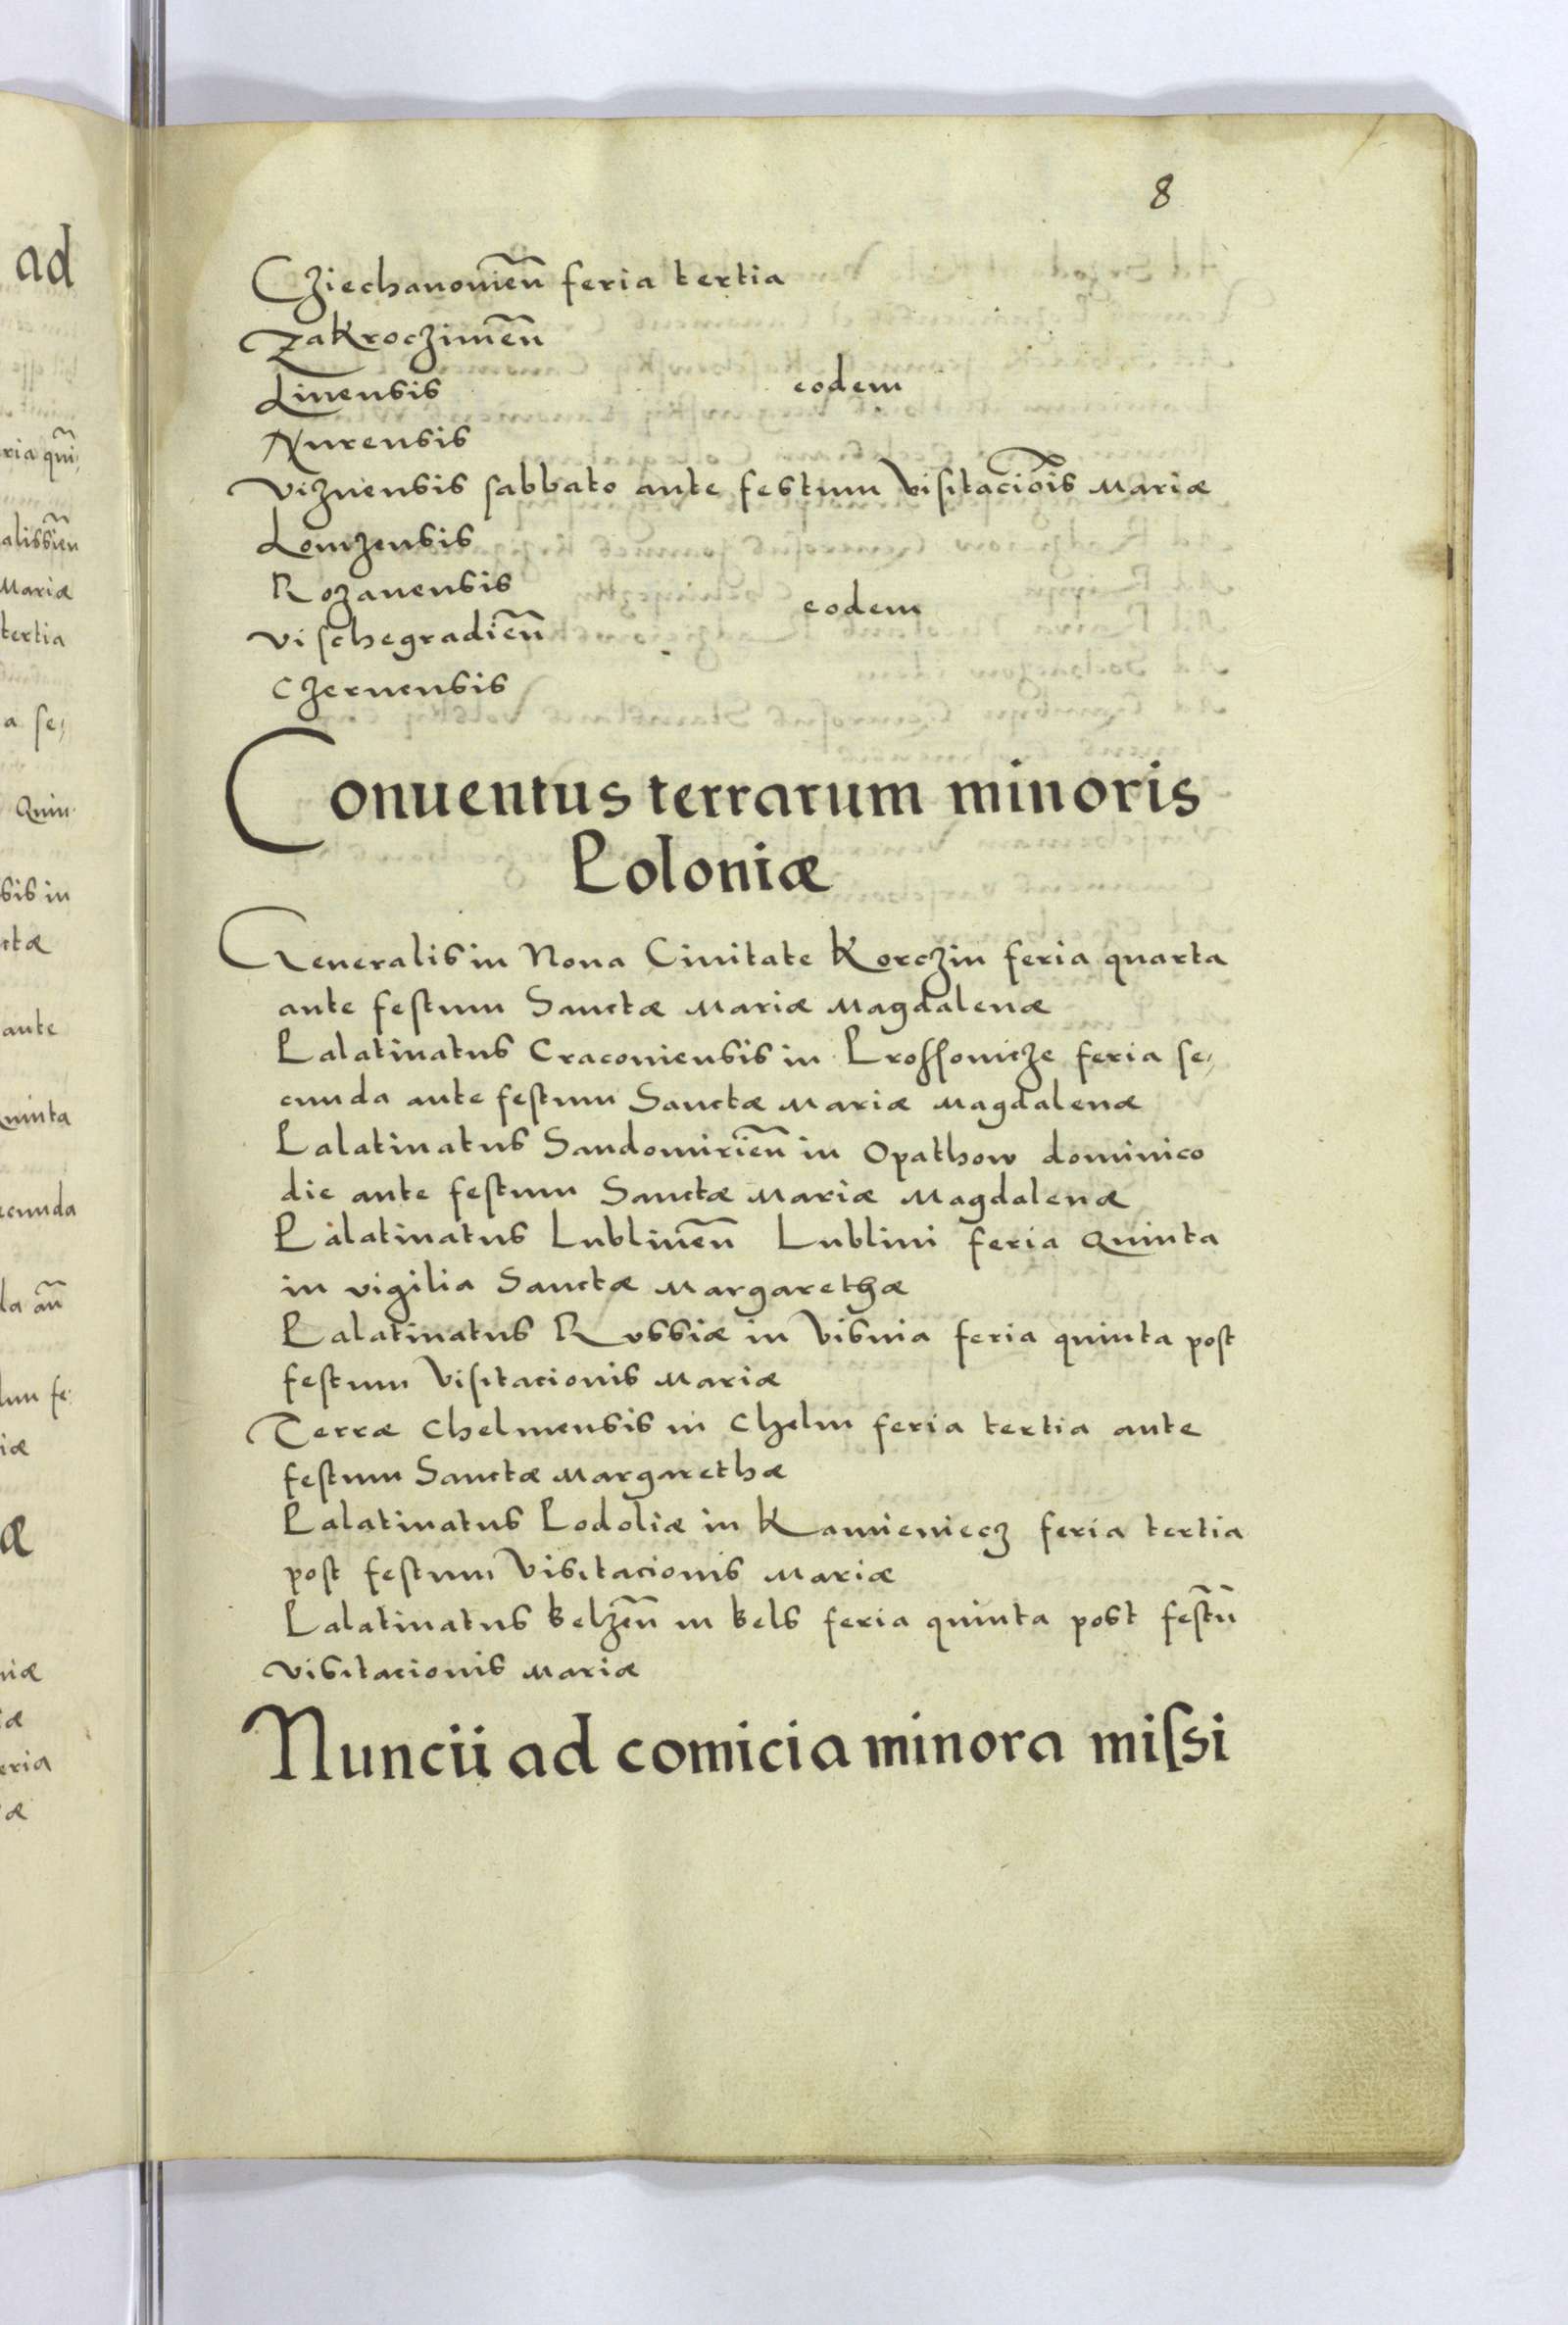 8
Cziechanouien̄ feria tertia
Zakroczimen̄
Liuensis eodem
Nurensis
Viznensis sabbato ante festum Visitacio͞is Mariæ
Lomzensis
Rozanensis
eodem
Vischegradien̄
Czernensis
Conuentus terrarum minoris
Poloniæ
Generalis in Noua Ciuitate Korczin feria quarta
ante festum Sanctæ Mariæ Magdalenæ
Palatinatus Cracouiensis in Prossouicze feria se,
cunda ante festum Sanctæ Mariæ Magdalenæ
Palatinatus Sandomirien̄ in Opathow dominico
die ante festum Sanctæ Mariæ Magdalenæ
Palatinatus Lublinen̄ Lublini feria Quinta
in vigilia Sanctæ Margarethæ
Palatinatus Russiæ in Visnia feria quinta post
festum Visitacionis Mariæ
Terræ Chelmensis in Chelm feria tertia ante
festum Sanctæ Margarethæ
Palatinatus Podoliæ in Kamieniecz feria tertia
post festum Visitacionis Mariæ
Palatinatus Belzen̄ in Bels feria quinta post festū
Visitacionis Mariæ
Nuncii ad comicia minora missi
ad
ria qui,
alissien̄
Mariæ
tertia
a se,
Quin
sis in
ctæ
ante
quinta
ecunda
da an̄
iæ
æ
niæ
eria
æ